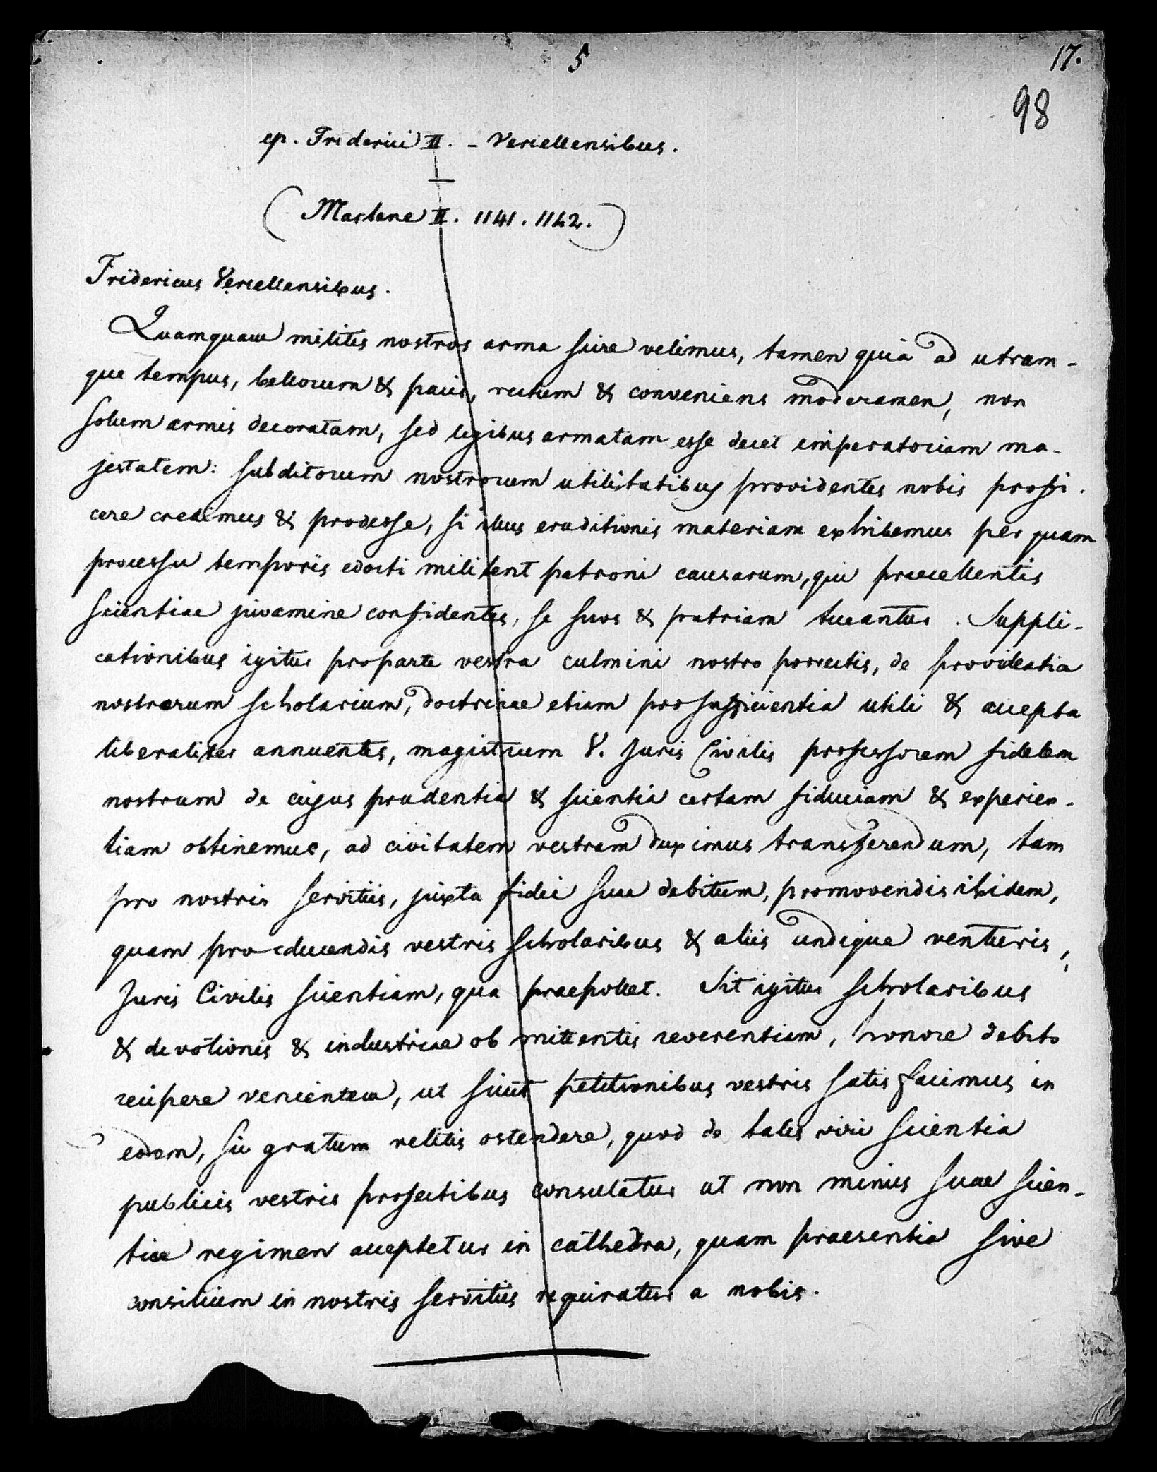 5
17.
98
ep. Friderici II. - Vercellensibus.
(Martene II. 1141. 1142.)
Fridericus Vercellensibus.
Quamquam milites nostros arma scire velimus, tamen quia ad utram-
que tempus, bellorum & pacis, rectum & conveniens moderamen, non
solum armis decoratam, sed legibus armatam esse decet imperatoriam ma-
jestatem: subditorum nostrorum utilitatibus providentes nobis profi-
cere credimus & prodesse, si illius eruditionis materiam exhibemus per quam
processu temporis edocti militent patroni causarum, qui praecellentis
scientiae juvamine confidentes, se suos & patriam tueantur. Suppli-
cationibus igitur pro parte vestra culmini nostro porrectis, de providentia
nostrorum scholarium, doctrinae etiam pro sufficientia utili & accepta
liberaliter annuentes, magistrum V. Juris Civilis professorem fidelem
nostrum de cujus prudentia & scientia certam fiduciam & experien-
tiam obtinemus, ad civitatem vestram duximus transferendum, tam
pro nostris servitiis, juxta fidei suae debitum, promovendis ibidem,
quam pro educendis vestris scholaribus & aliis undique venturis,
Juris Civilis scientiam, qua praepollet. Sit igitur scholaribus
& devotionis & industriae ob mittentis reverentiam, honore debito
recipere venientem, ut sicut petitionibus vestris satisfacimus in
eodem, sic gratum velitis ostendere, quod de talis viri scientia
publicis vestris profectibus consulatur ut non minus suae scien-
tiae regimen acceptetur in cathedra, quam praesentia sive
consilium in nostris servitiis requiratur a nobis.